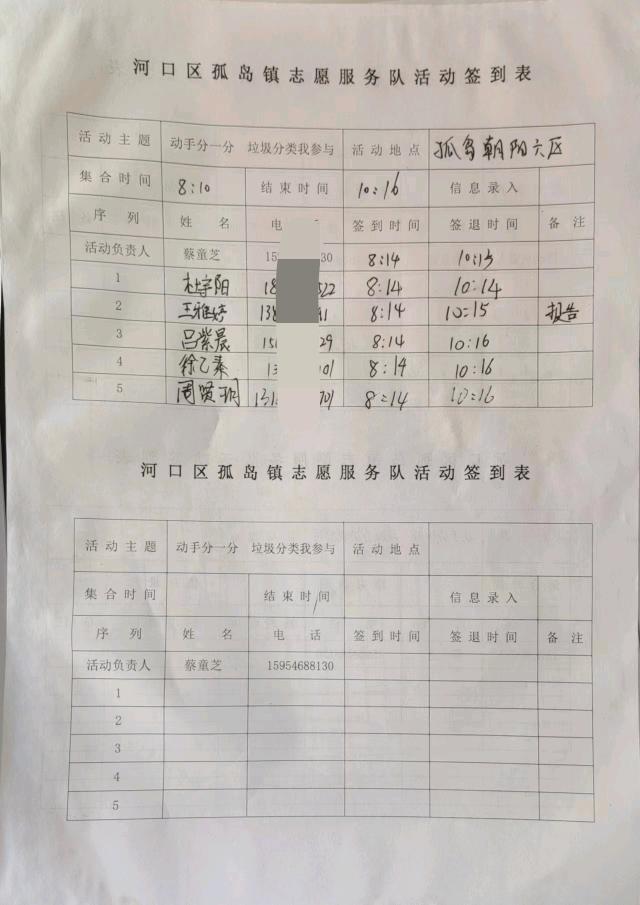 河口区孤岛镇志愿服务队活动签到表
活动主题 动手分一分 垃圾分类我参与 活动地点 孤岛朝阳六区
集合时间 8:10 结束时间 10:16 信息录入
序列 姓名 电 话 签到时间 签退时间 备注
活动负责人 蔡童芝 15 30 8:14 10:15
1 杜宇阳 18 522 8:14 10:14
2 王雅婷 138 91 8:14 10:15 报告
3 吕紫晨 15 29 8:14 10:16
4 徐乙蓁 13 101 8:14 10:16
5 周贤玥 131 701 8:14 10:16
河口区孤岛镇志愿服务队活动签到表
活动主题 动手分一分 垃圾分类我参与 活动地点
集合时间 结束时间 信息录入
序列 姓名 电话 签到时间 签退时间 备注
活动负责人 蔡童芝 15954688130
1
2
3
4
5